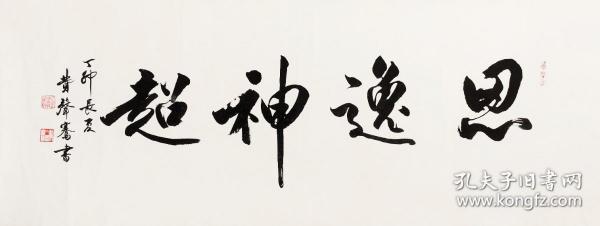 思逸神超
丁卯長夏
費聲騫書
孔夫子旧书网
www.kongfz.com